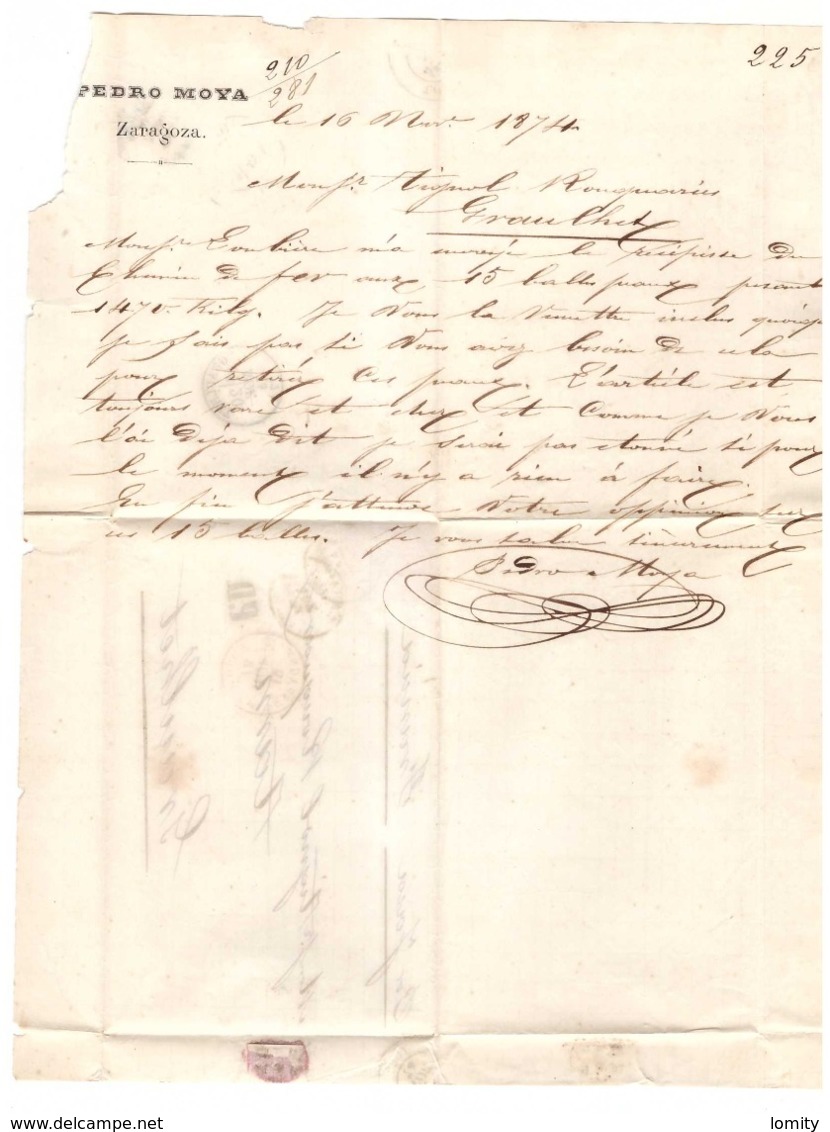 225
210
281
PEDRO MOYA
Zaragoza.
le 16 Novr. 1874
Monsr. Tignol Rouquariès
Graulhet
Monsr. Loubière m'a envoyé le récépisse du
Chemin de fer aux 15 balles peaux pesant
1470 Kilg. Je Vous la remettre inclus quoique
je sais pas si Vous avez besoin de cela
pour retirer ces peaux. L'article est
toujours rare et cher et comme je Vous
l'ai déjà dit je serai pas etonné si pour
le moment il n'y a rien à faire.
En fin j'attends Votre oppinion sur
ces 15 balles. Je vous salue sincèrement
Pedro Moya
PD
lomity